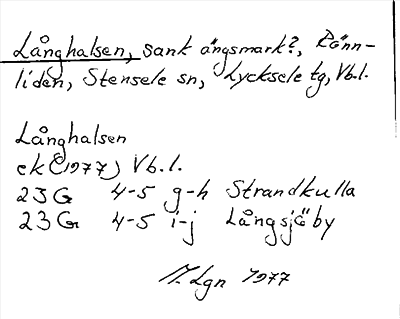 Långhalsen, sank ängsmark?, Rönn-
liden, Stensele sn, Lycksele tg, Vb.l.
Långhalsen
ek (1977) Vb.l.
23G 4-5 g-h Strandkulla
23G 4-5 i-j Långsjöby
M. Lgn 1977